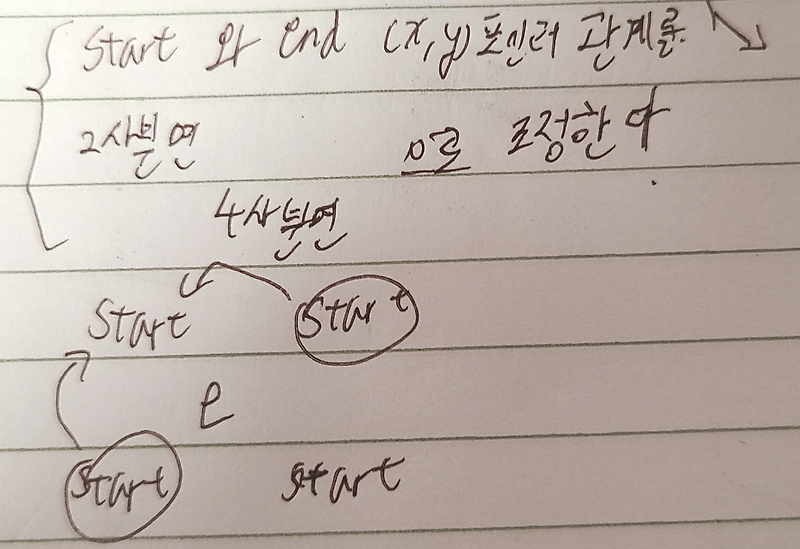 Start 와 end (x,y)포인터 관계를
2사분면 으로 조정한다
4사분면
Start Start
e
Start start